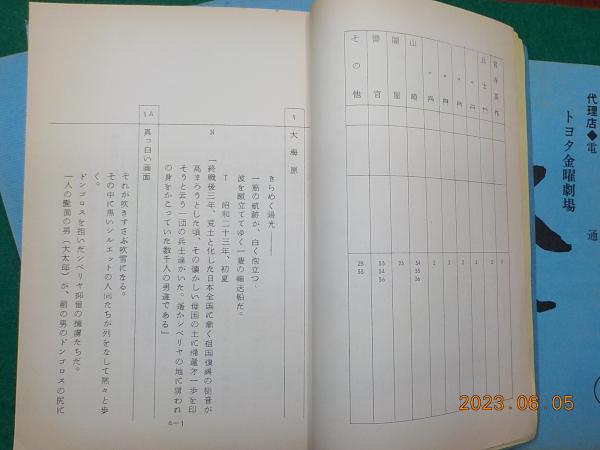 代理店◆電通
トヨタ金曜劇場
官寺
兵士
〃 B
〃 C
〃 D
山崎
闇屋
警官
その他
2
2
2
2
54
55
56
23
53
54
56
25
53
1 大海原
きらめく陽光――
一筋の航跡が、白く泡立つ、
波を蹴立ててゆく一隻の輸送船だ。
T 昭和二十三年、初夏
N 「終戦後三年、荒土と化した日本全国に漸く祖国復興の槌音が
高まろうとした頃、その懐かしい母国の土に帰還才一歩を印
そうと云う一団の兵士達がいた。遥かシベリヤの地に囚われ
の身をかこっていた数千人の男達である」
1A 真っ白い画面
それが吹きすさぶ吹雪になる。
その中に黒いシルエットの人間たちが列をなして黙々と歩
く。
ドンゴロスを担いだシベリヤ抑留の捕虜たちだ。
一人の髭面の男(大太郎)が、前の男のドンゴロスの尻に
a―1
2023.06.05